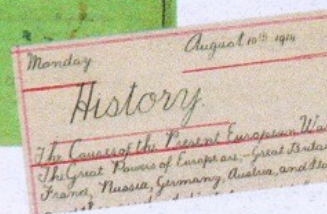 Monday
August 10th 1914
History.
The Causes of the Present European Wa
The Great Powers of Europe are:- Great Britain
France, Russia, Germany, Austria, and Ita